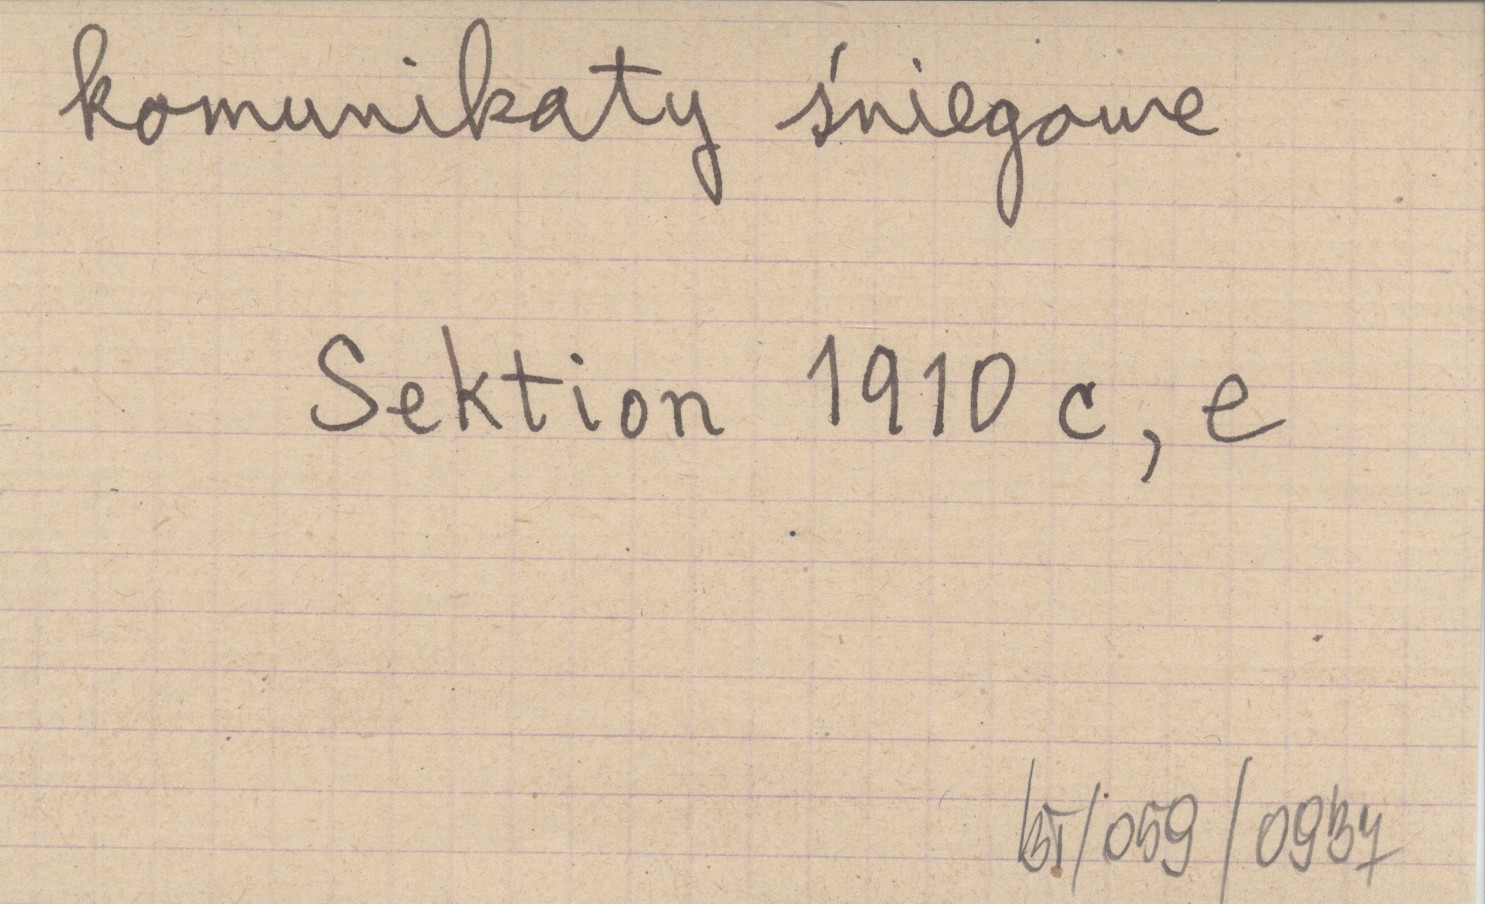 komunikaty śniegowe
Sektion 1910 c, e
/059/0937